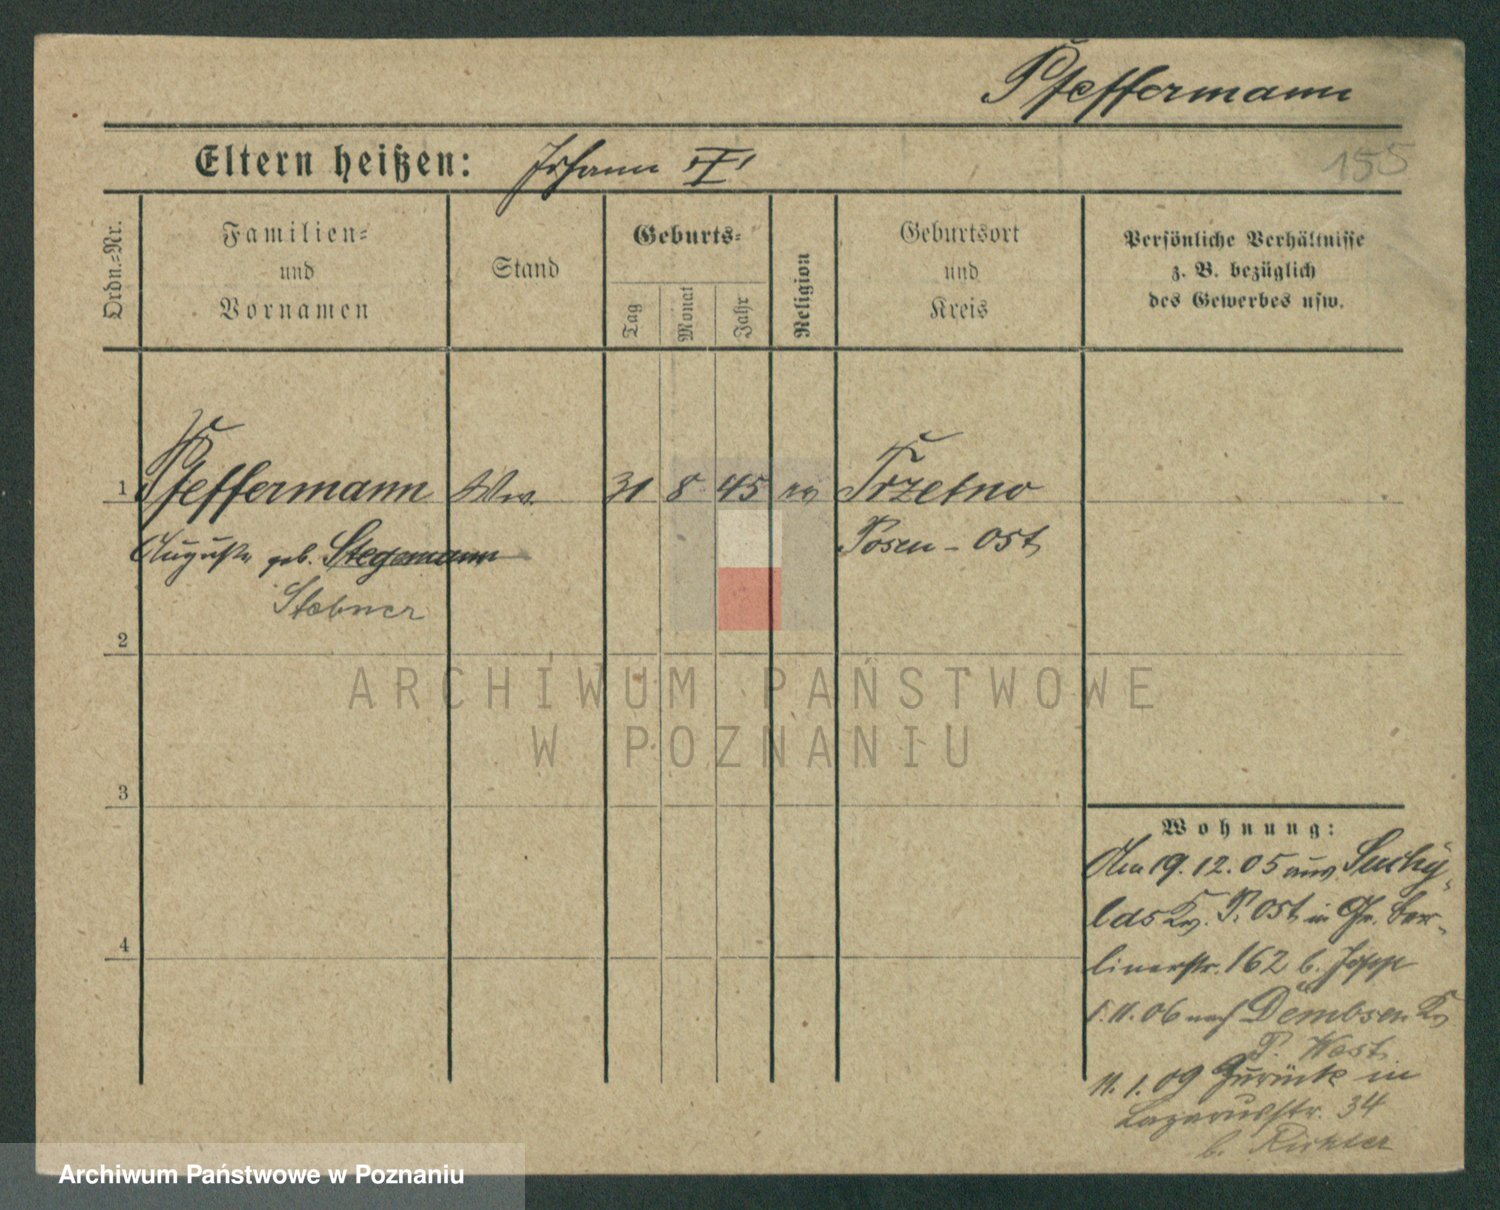 Pfeffermann
155
Eltern heißen: Johann "I"
Ordn.-Nr.
Familien-
und
Vornamen
Stand
Geburts-
Tag
Monat
Jahr
Religion
Geburtsort
und
Kreis
Persönliche Verhältnisse
z. B. bezüglich
des Gewerbes usw.
1 Pfeffermann Ww. 31 8 45 ev Trzetno
Auguste geb. Stegemann Posen-Ost
Stebner
2
3
4
Wohnung:
Am 19.12.05 aus Suchy-
las Kr. P. Ost in Gr. Ber-
linerstr. 162 b.
1.11.06 nach Dembsen Kr
P. West
11.1.09 zurück in
Lazarusstr. 34
b. Richter
ARCHIWUM PAŃSTWOWE
W POZNANIU
Archiwum Państwowe w Poznaniu